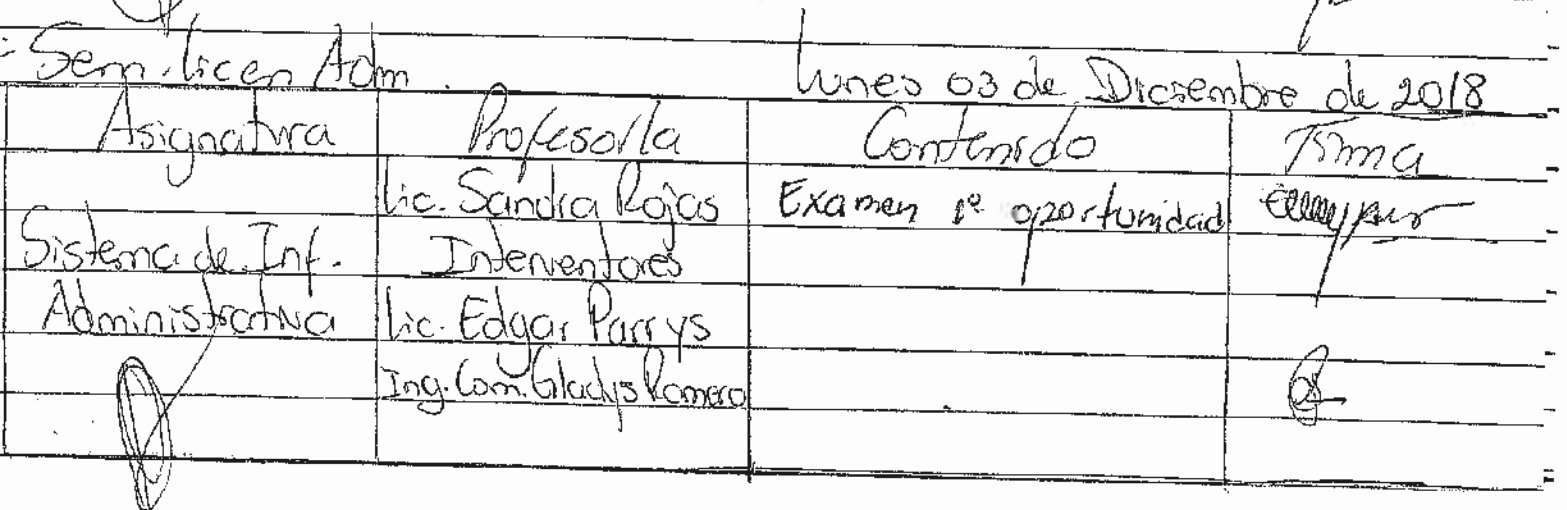 Sem. licen Adm. Lunes 03 de Diciembre de 2018
Asignatura Profesor/a Contenido Firma
Lic. Sandra Rojas Examen 1º oportunidad
Sistema de Inf. Interventores
Administrativa Lic. Edgar Parrys
Ing. Com. Gladys Romero